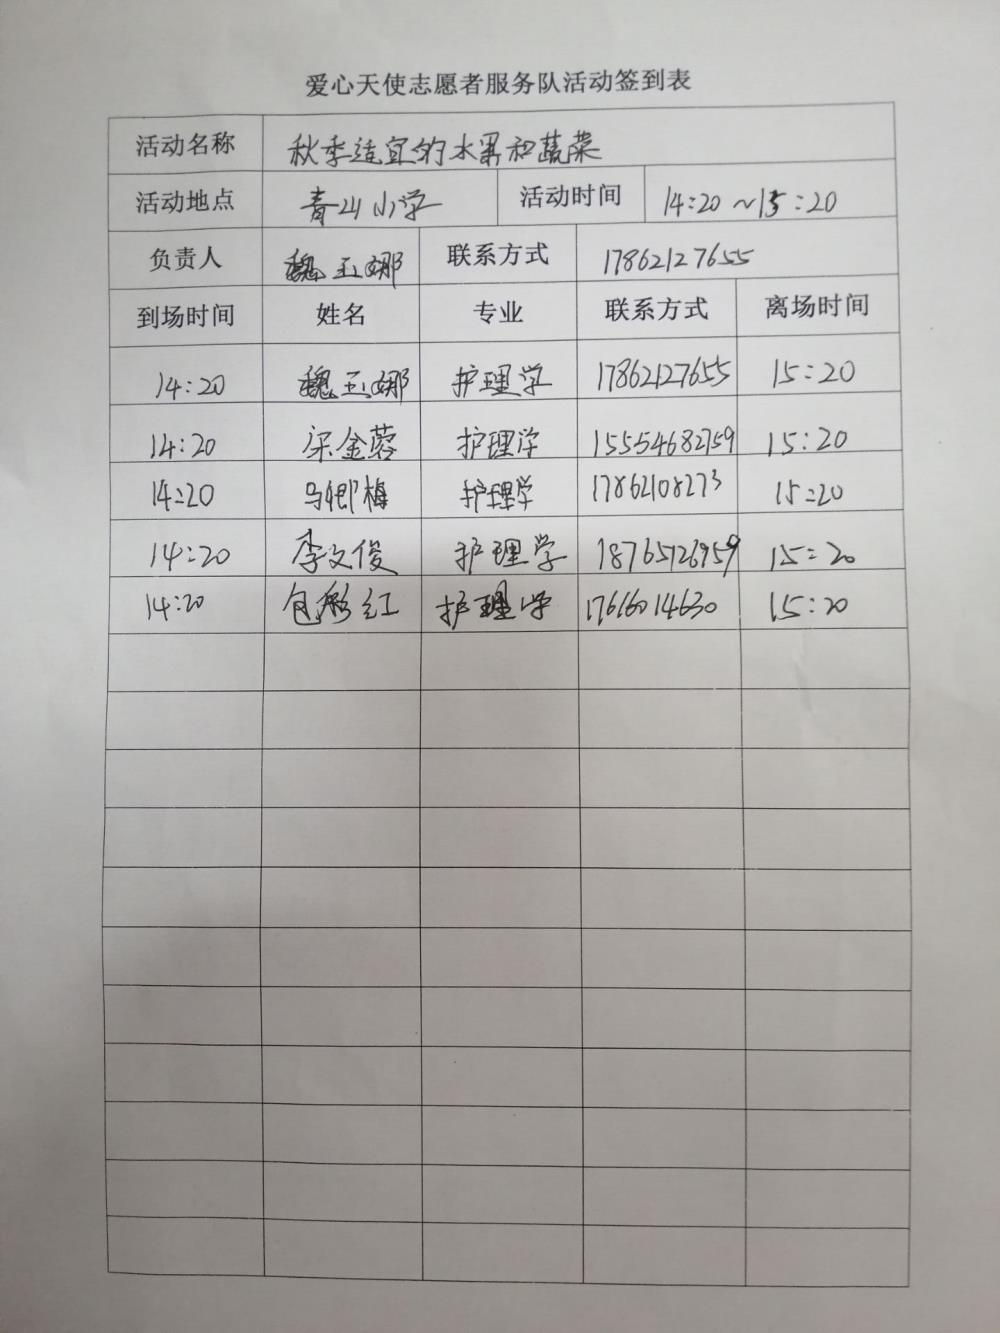 爱心天使志愿者服务队活动签到表
活动名称 秋季适宜的水果和蔬菜
活动地点 青山小学 活动时间 14:20~15:20
负责人 魏玉娜 联系方式 17862127655
到场时间 姓名 专业 联系方式 离场时间
14:20 魏玉娜 护理学 17862127655 15:20
14:20 梁金蓉 护理学 15554682759 15:20
14:20 马卿梅 护理学 17862108273 15:20
14:20 李文俊 护理学 18765126959 15:20
14:20 包彩红 护理学 17616014630 15:20